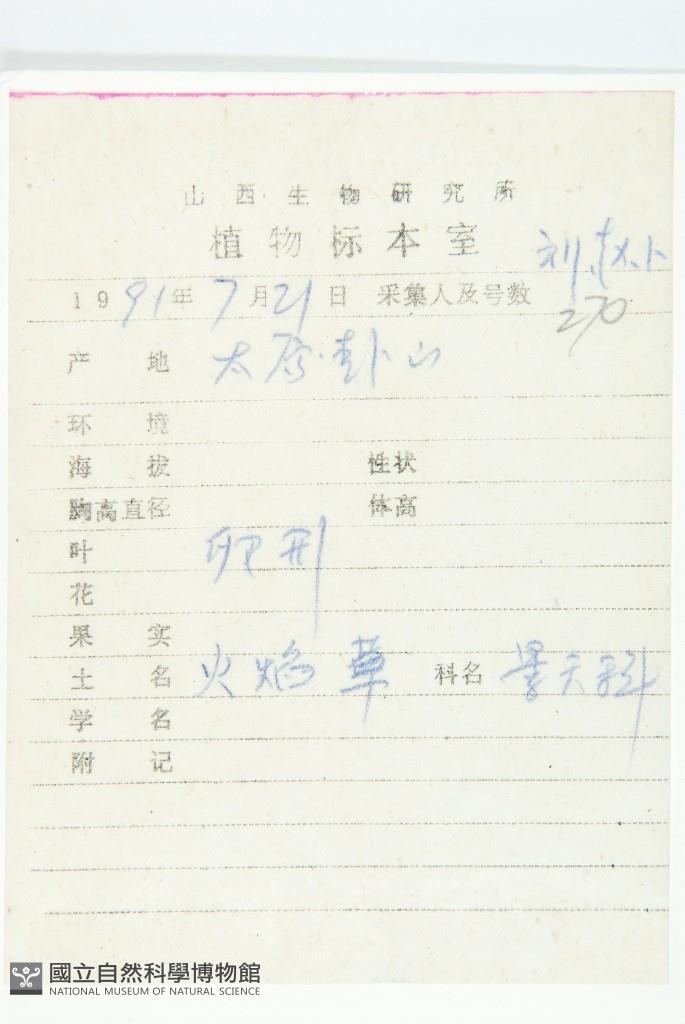 山西生物研究所
植物标本室
1991年7月21日 采集人及号数 刘
270
产地 太原·卦山
环境
海拔 性状
胸高直径 体高
叶 卵形
花
果实
土名 火焰草 科名 景天科
学名
附记
國立自然科學博物館
NATIONAL MUSEUM OF NATURAL SCIENCE